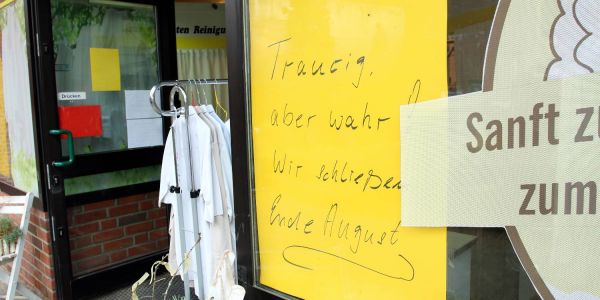 ten Reinigu
Drücken
Traurig,
aber wahr!
Wir schließen
Ende August
Sanft zu
zum